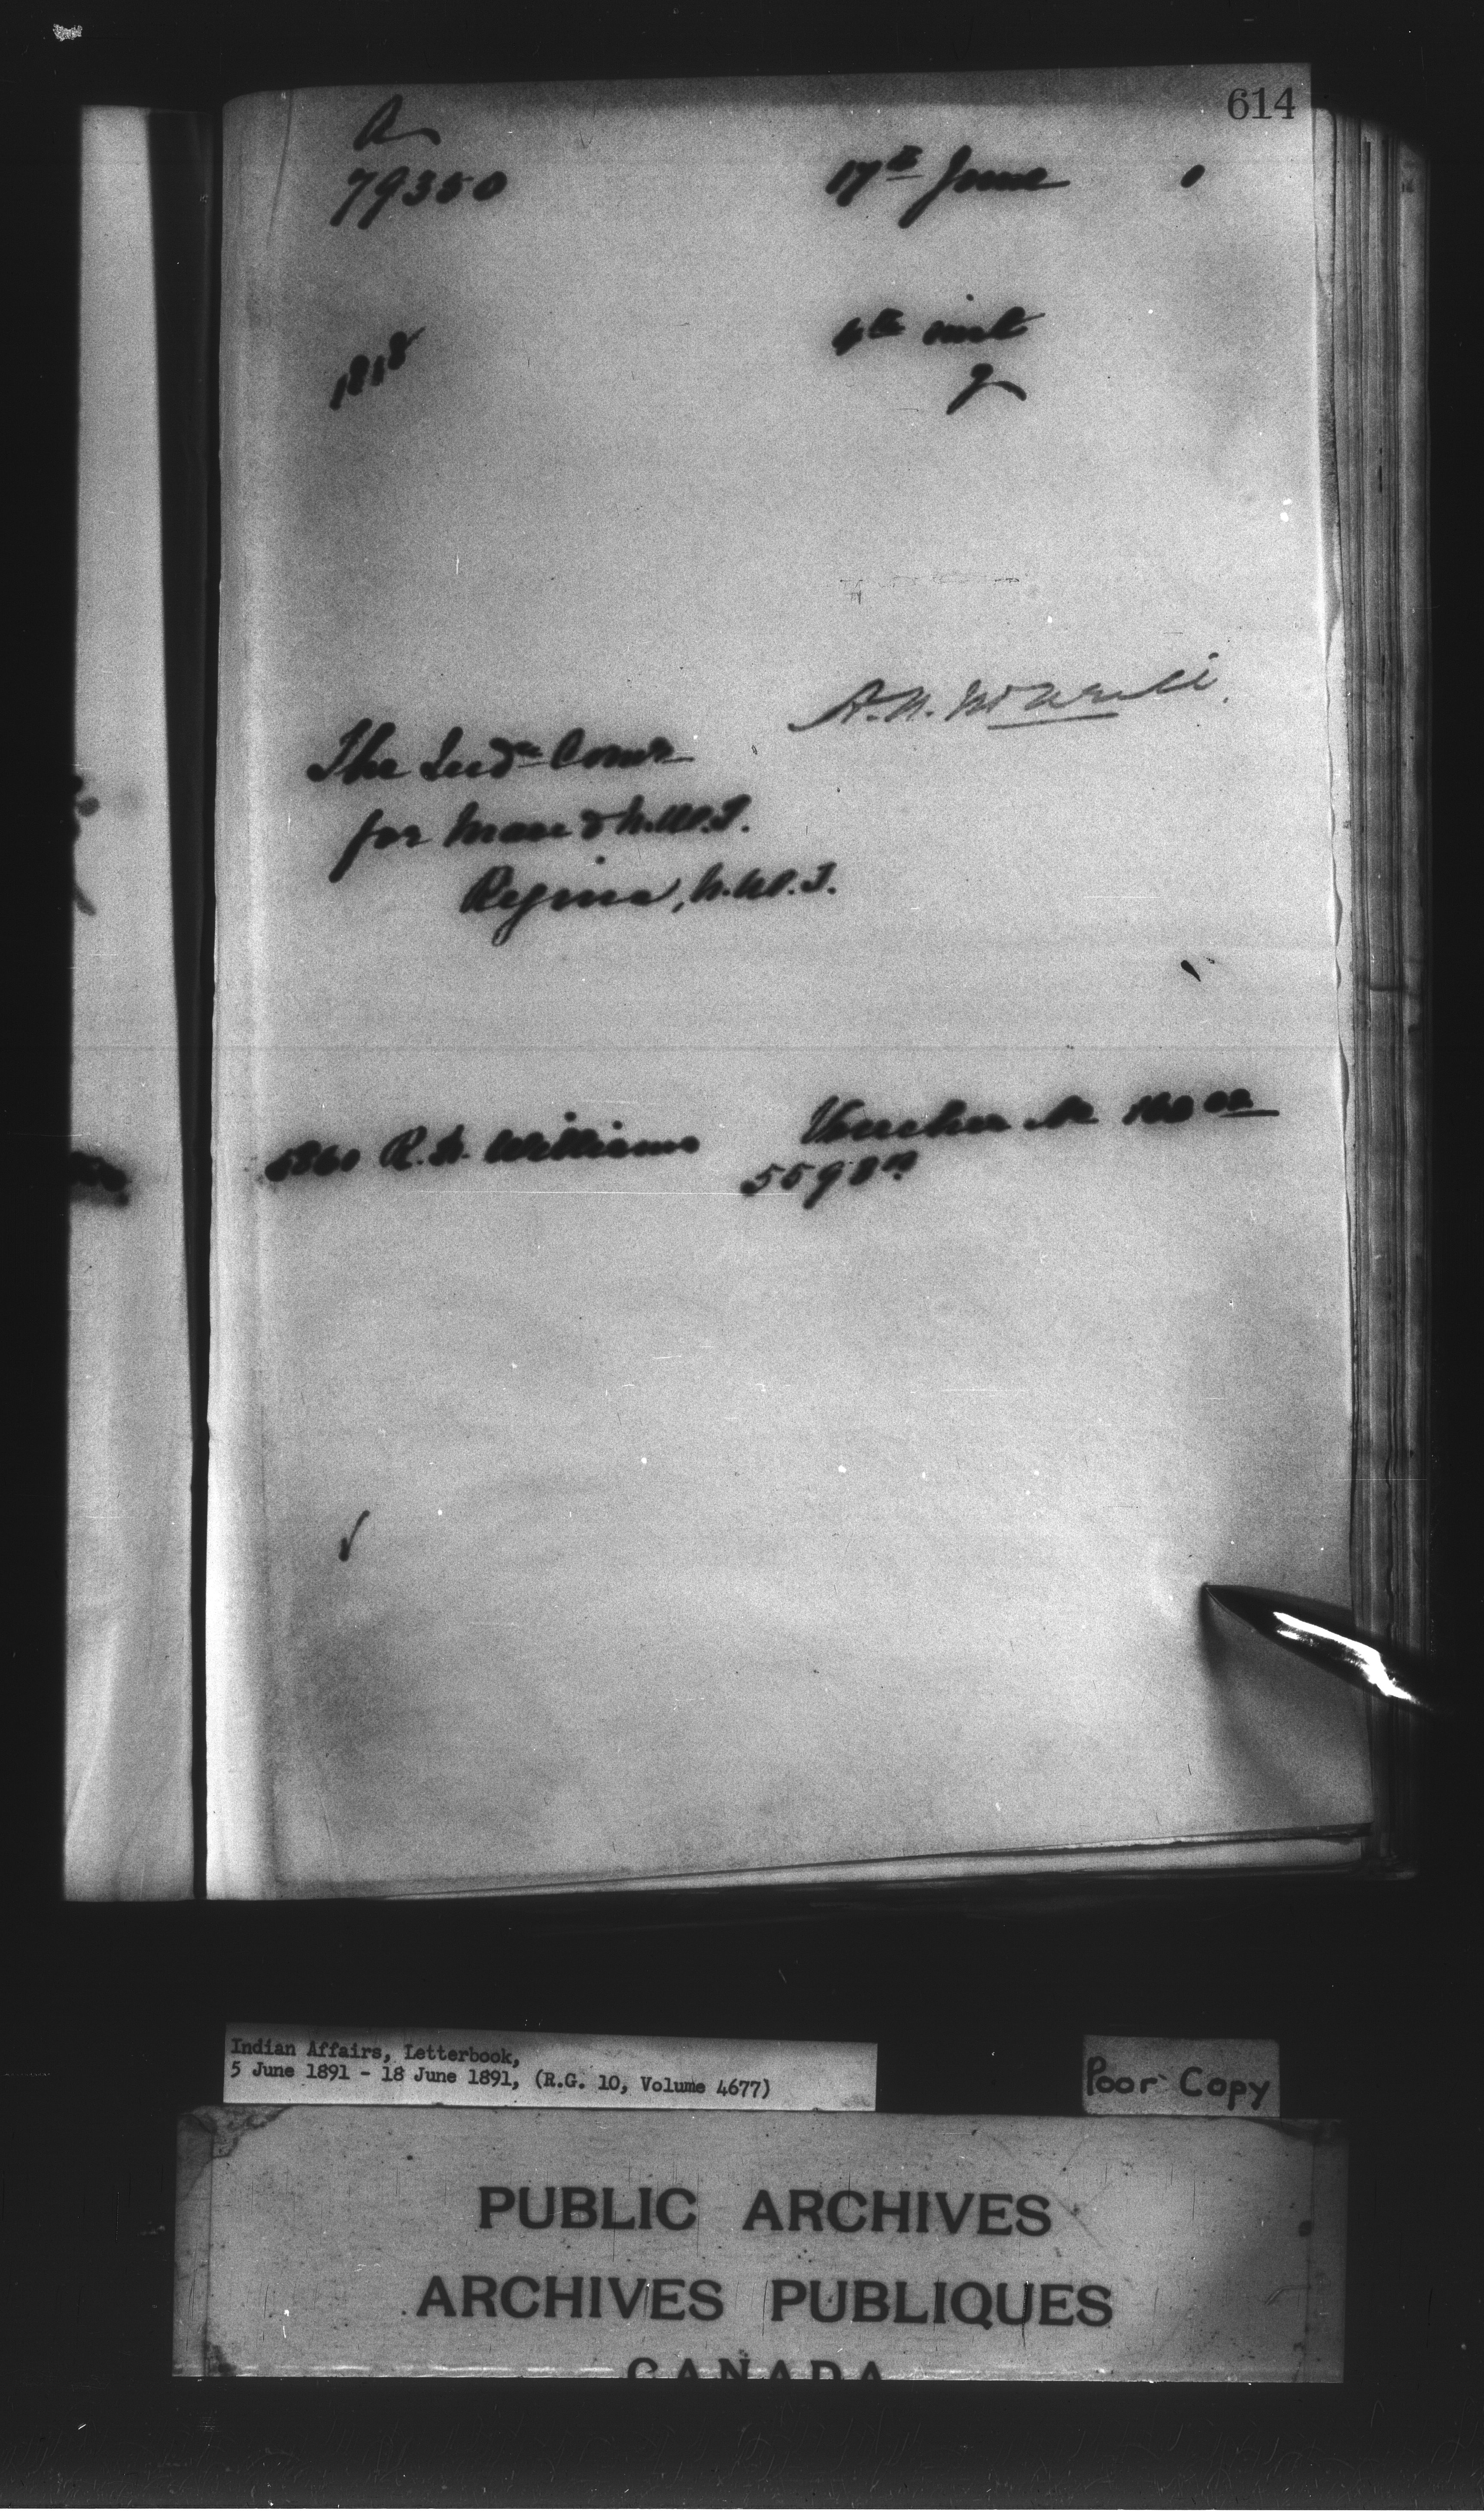 614
A
79350
17th June 1
1818
4th inst
The Indn Comr
for Man & N.W.T.
Regina, N.W.T.
5860 R. H. Williams
Voucher
5598
Indian Affairs, Letterbook,
5 June 1891 - 18 June 1891, (R.G. 10, Volume 4677)
Poor Copy
PUBLIC ARCHIVES
ARCHIVES PUBLIQUES
CANADA